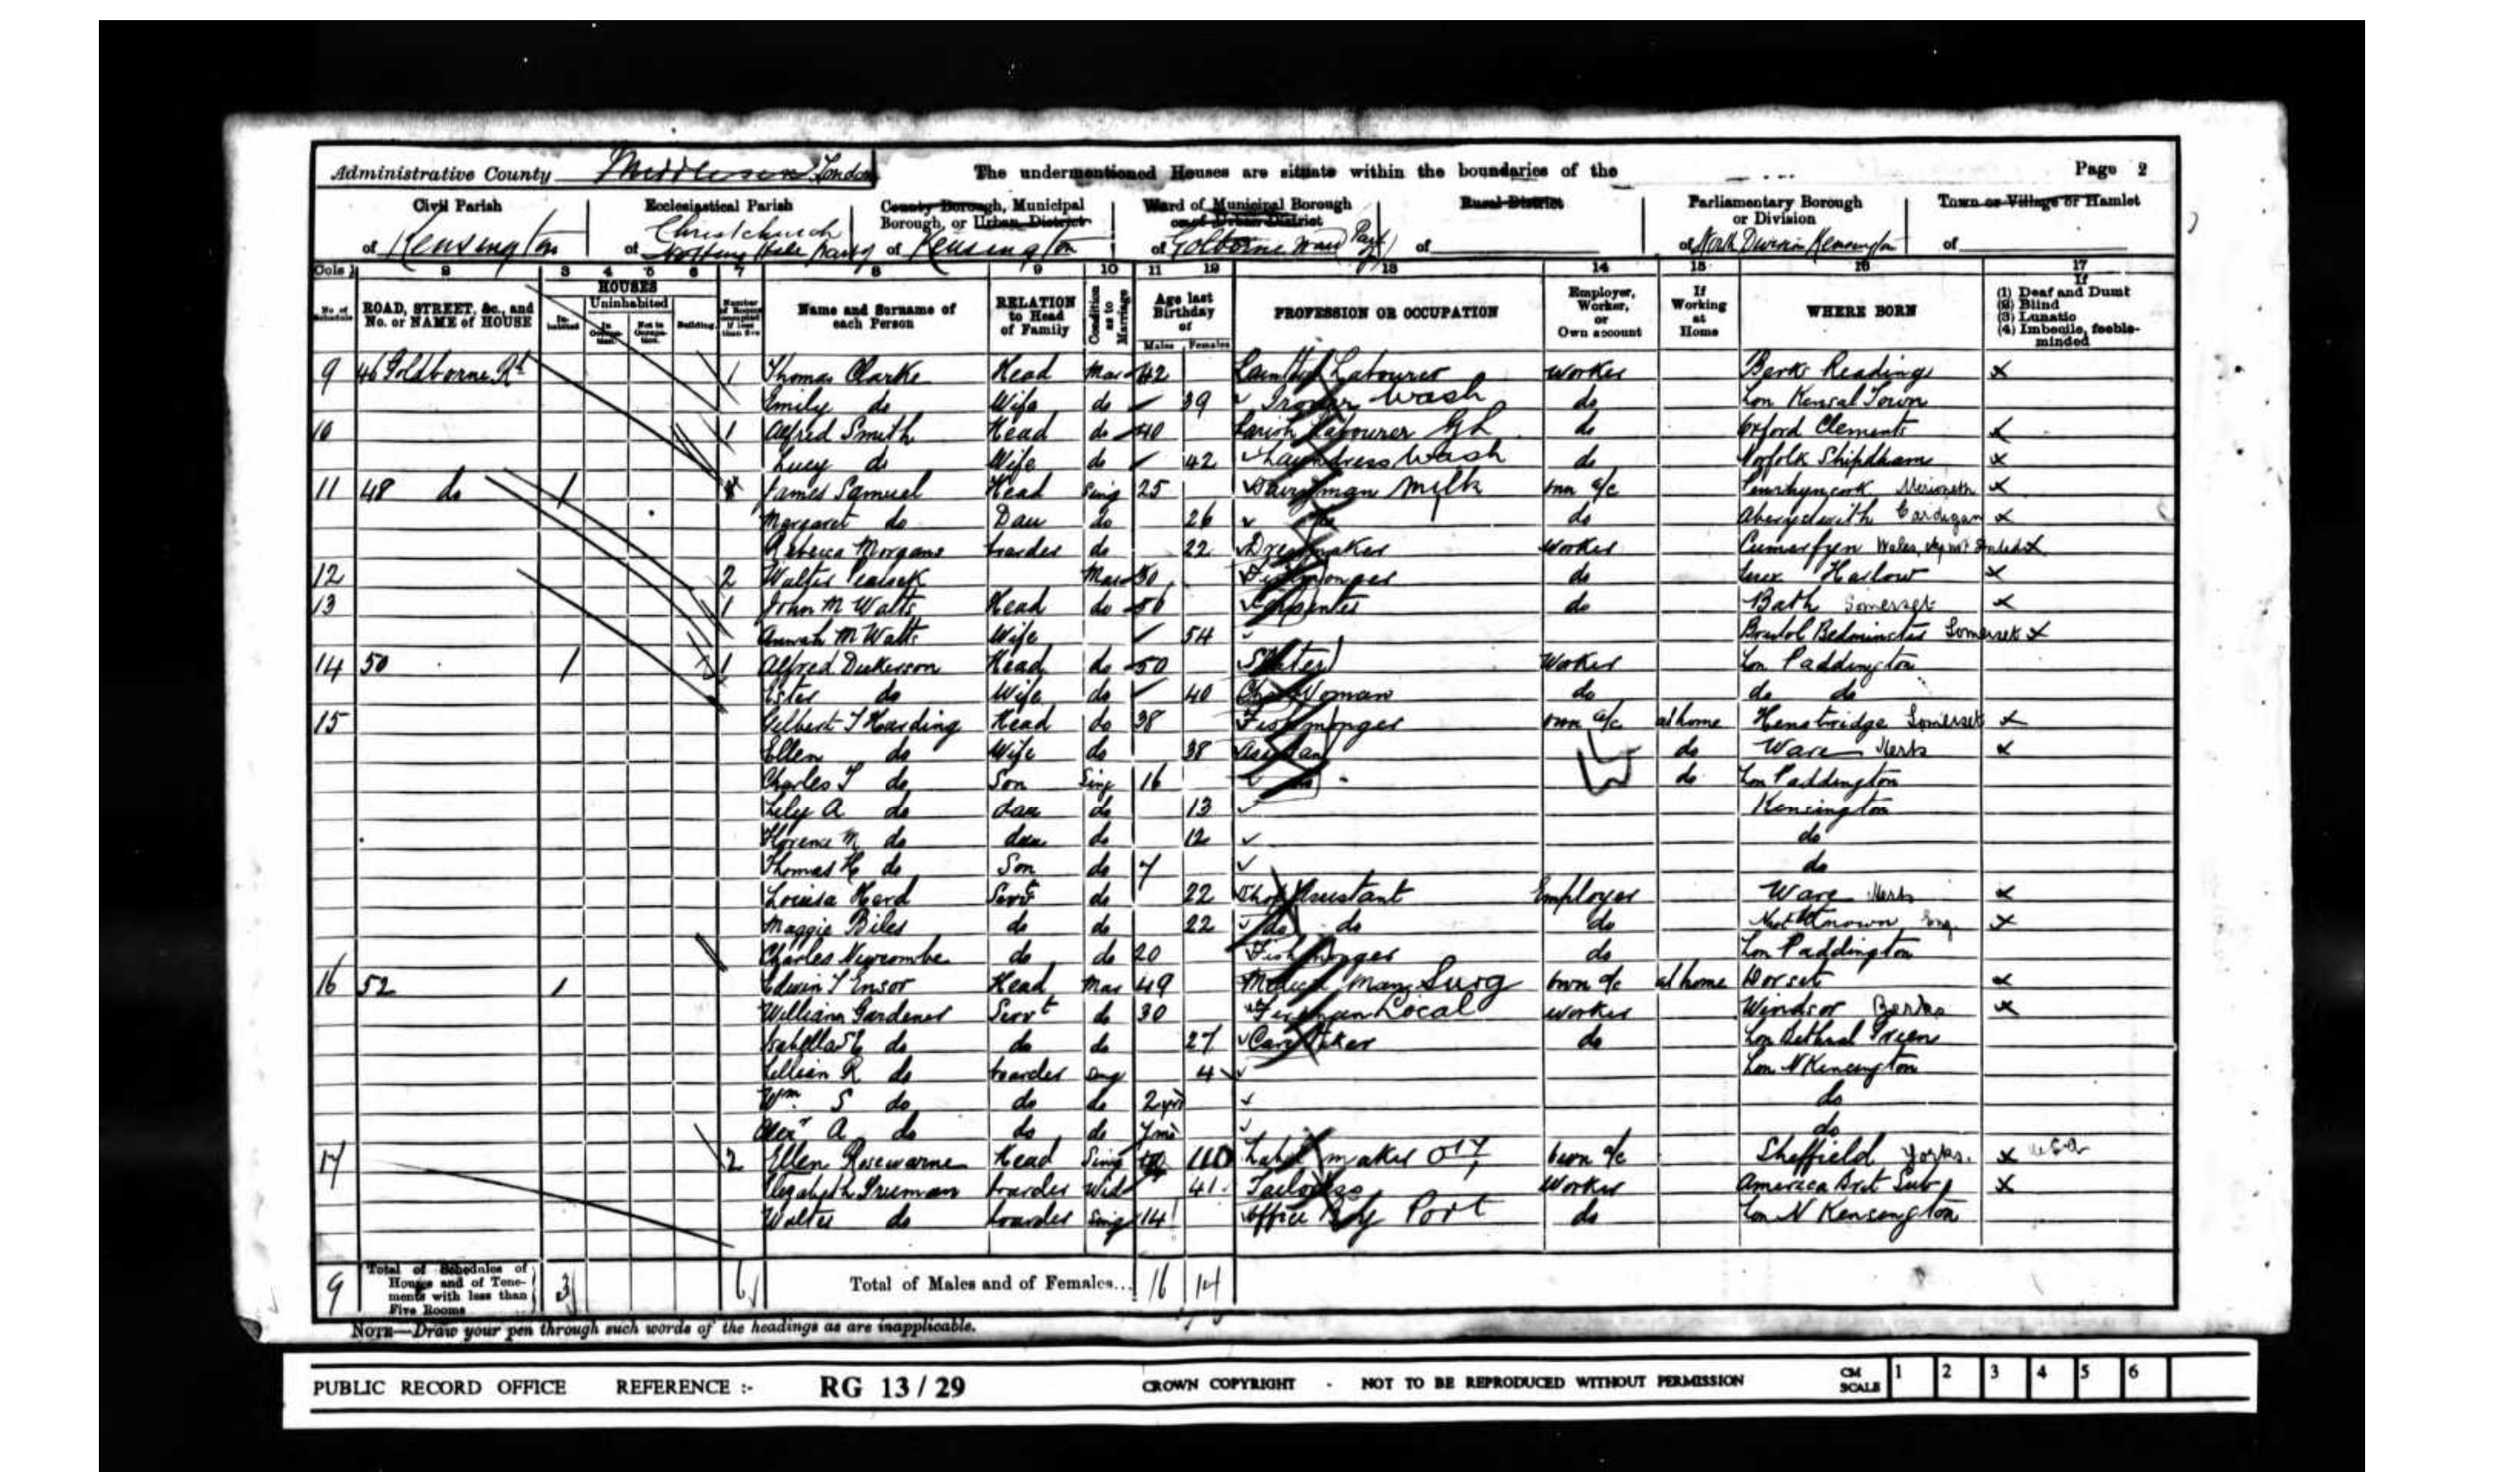 Administrative County Middlesex London The undermentioned Houses are situate within the boundaries of the Page 2
Civil Parish Ecclesiastical Parish County Borough, Municipal Borough, or Urban District Ward of Municipal Borough or of Urban District Rural District Parliamentary Borough or Division Town or Village or Hamlet
of Kensington of Christchurch Notting Hill of Kensington of Golborne Ward of of North Division Kensington of
Cols 1 2 3 4 5 6 7 8 9 10 11 12 13 14 15 16 17
No. of Schedule ROAD, STREET, &c., and No. or NAME of HOUSE HOUSES Inhabited Uninhabited In Occupation. Not in Occupation. Building. Number of Rooms occupied if less than five Name and Surname of each Person RELATION to Head of Family Condition as to Marriage Age last Birthday of Males Females PROFESSION OR OCCUPATION Employer, Worker, or Own account If Working at Home WHERE BORN If (1) Deaf and Dumb (2) Blind (3) Lunatic (4) Imbecile, feeble-minded
9 46 Goldborne Rd 1 Thomas Clarke Head Mar 42 Labourer Worker Berks Reading x
Emily do Wife do 39 Ironer Wash do Lon Kensal Town
10 1 Alfred Smith Head do 40 Parish Labourer GL do Oxford Clements x
Lucy do Wife do 42 Laundress Wash do Norfolk Shipdham x
11 48 do 1 James Samuel Head Sing 25 Dairyman Milk own a/c Penrhyncock Merioneth x
Margaret do Dau do 26 do do Aberystwith Cardigan x
Rebecca Morgans boarder do 22 Dressmaker Worker Wales x
12 2 Walter Mar 30 Fishmonger do Essex Harlow x
13 1 John M Watts Head do 56 Carpenter do Bath Somerset x
M Watts Wife 54 Bristol Bedminster Somerset x
14 50 1 1 Alfred Dickerson Head do 50 Slater Worker Lon Paddington
Ester do Wife do 40 Char Woman do do do
15 Gilbert T Harding Head do 38 Fishmonger own a/c at home Henstridge Somerset x
Ellen do Wife do 38 Assistant do Ware Herts x
Charles T do Son Sing 16 do do Lon Paddington
Lily A do dau do 13 Kensington
Florence M do dau do 12 do
Thomas H do Son do 7 do
Louisa Hard Servt do 22 Shop Assistant Employer Ware Herts x
Maggie Biles do do 22 do do do Not Known Eng x
Charles Newcombe do do 20 Fishmonger do Lon Paddington
16 52 1 Edwin T Ensor Head Mar 49 Medical Man Surg own a/c at home Dorset x
William Gardener Servt do 30 Local Worker Windsor Berks x
Isabella E do do do 27 Caretaker do Lon Bethnal Green
Lillian R do boarder Sing 4 Lon N Kensington
Wm. S do do do 2 yrs do
Alexr A do do do 7 ms do
17 2 Ellen Rosewarne Head Sing 40 Label maker own a/c Sheffield Yorks. x
Elizabeth Freeman boarder Wid 41 Tailoress Worker America Brit Sub x
Walter do boarder Sing 14 Office Boy Port do Lon N Kensington
9 Total of Schedules of Houses and of Tenements with less than Five Rooms 3 6 Total of Males and of Females... 16 14
NOTE—Draw your pen through such words of the headings as are inapplicable.
PUBLIC RECORD OFFICE REFERENCE :- RG 13/29 CROWN COPYRIGHT - NOT TO BE REPRODUCED WITHOUT PERMISSION CM SCALE 1 2 3 4 5 6